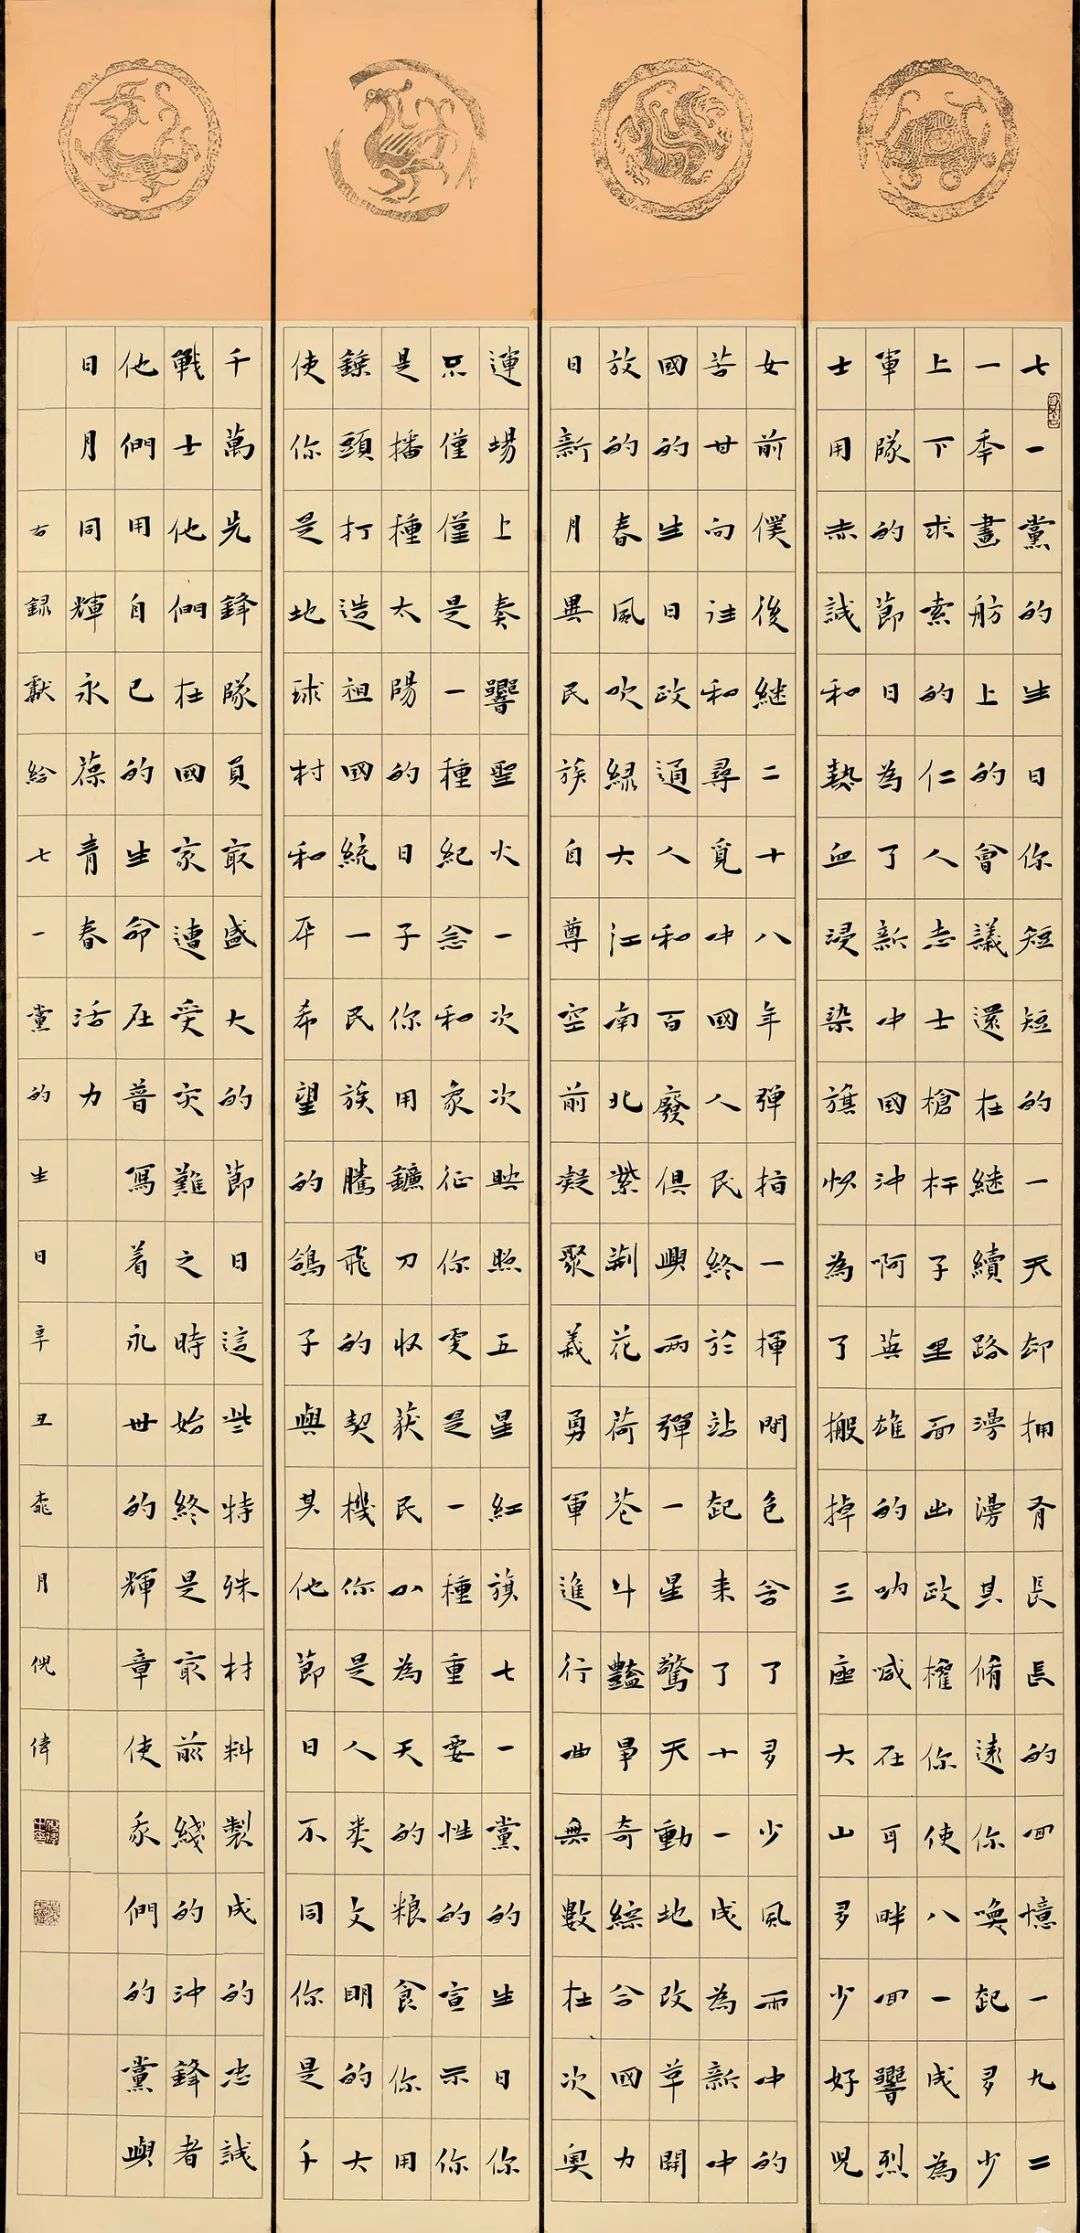 七一黨的生日你短短的一天却拥有長長的回憶一九二
一年畫舫上的會議還在継續路漫漫其脩遠你喚起多少
上下求索的仁人志士槍杆子里面出政權你使八一成為
軍隊的節日為了新中國沖啊英雄的吶喊在耳畔回響烈
士用赤誠和熱血浸染旗帜為了搬掉三座大山多少好兒
女前僕後継二十八年彈指一揮間包含了多少風雨中的
苦甘向往和尋覓中國人民終於站起来了十一成為新中
國的生日政通人和百廢俱興两彈一星驚天動地改革開
放的春風吹緑大江南北紫荆花荷花斗豔争奇綜合國力
日新月異民族自尊空前凝聚義勇軍進行曲無數在次奥
運場上奏響聖火一次次映照五星紅旗七一黨的生日你
只僅僅是一種紀念和象征你更是一種重要性的宣示你
是播種太陽的日子你用鐮刀收获民以為天的粮食你用
錘頭打造祖國統一民族騰飛的契機你是人类文明的大
使你是地球村和平希望的鴿子與其他節日不同你是千
千萬先鋒隊員最盛大的節日這些特殊材料製成的忠誠
戰士他們在國家遭受災難之時始終是最前綫的沖鋒者
他們用自己的生命在普寫着永世的輝章使我們的黨與
日月同輝永葆青春活力
右録獻給七一黨的生日辛丑月倪偉